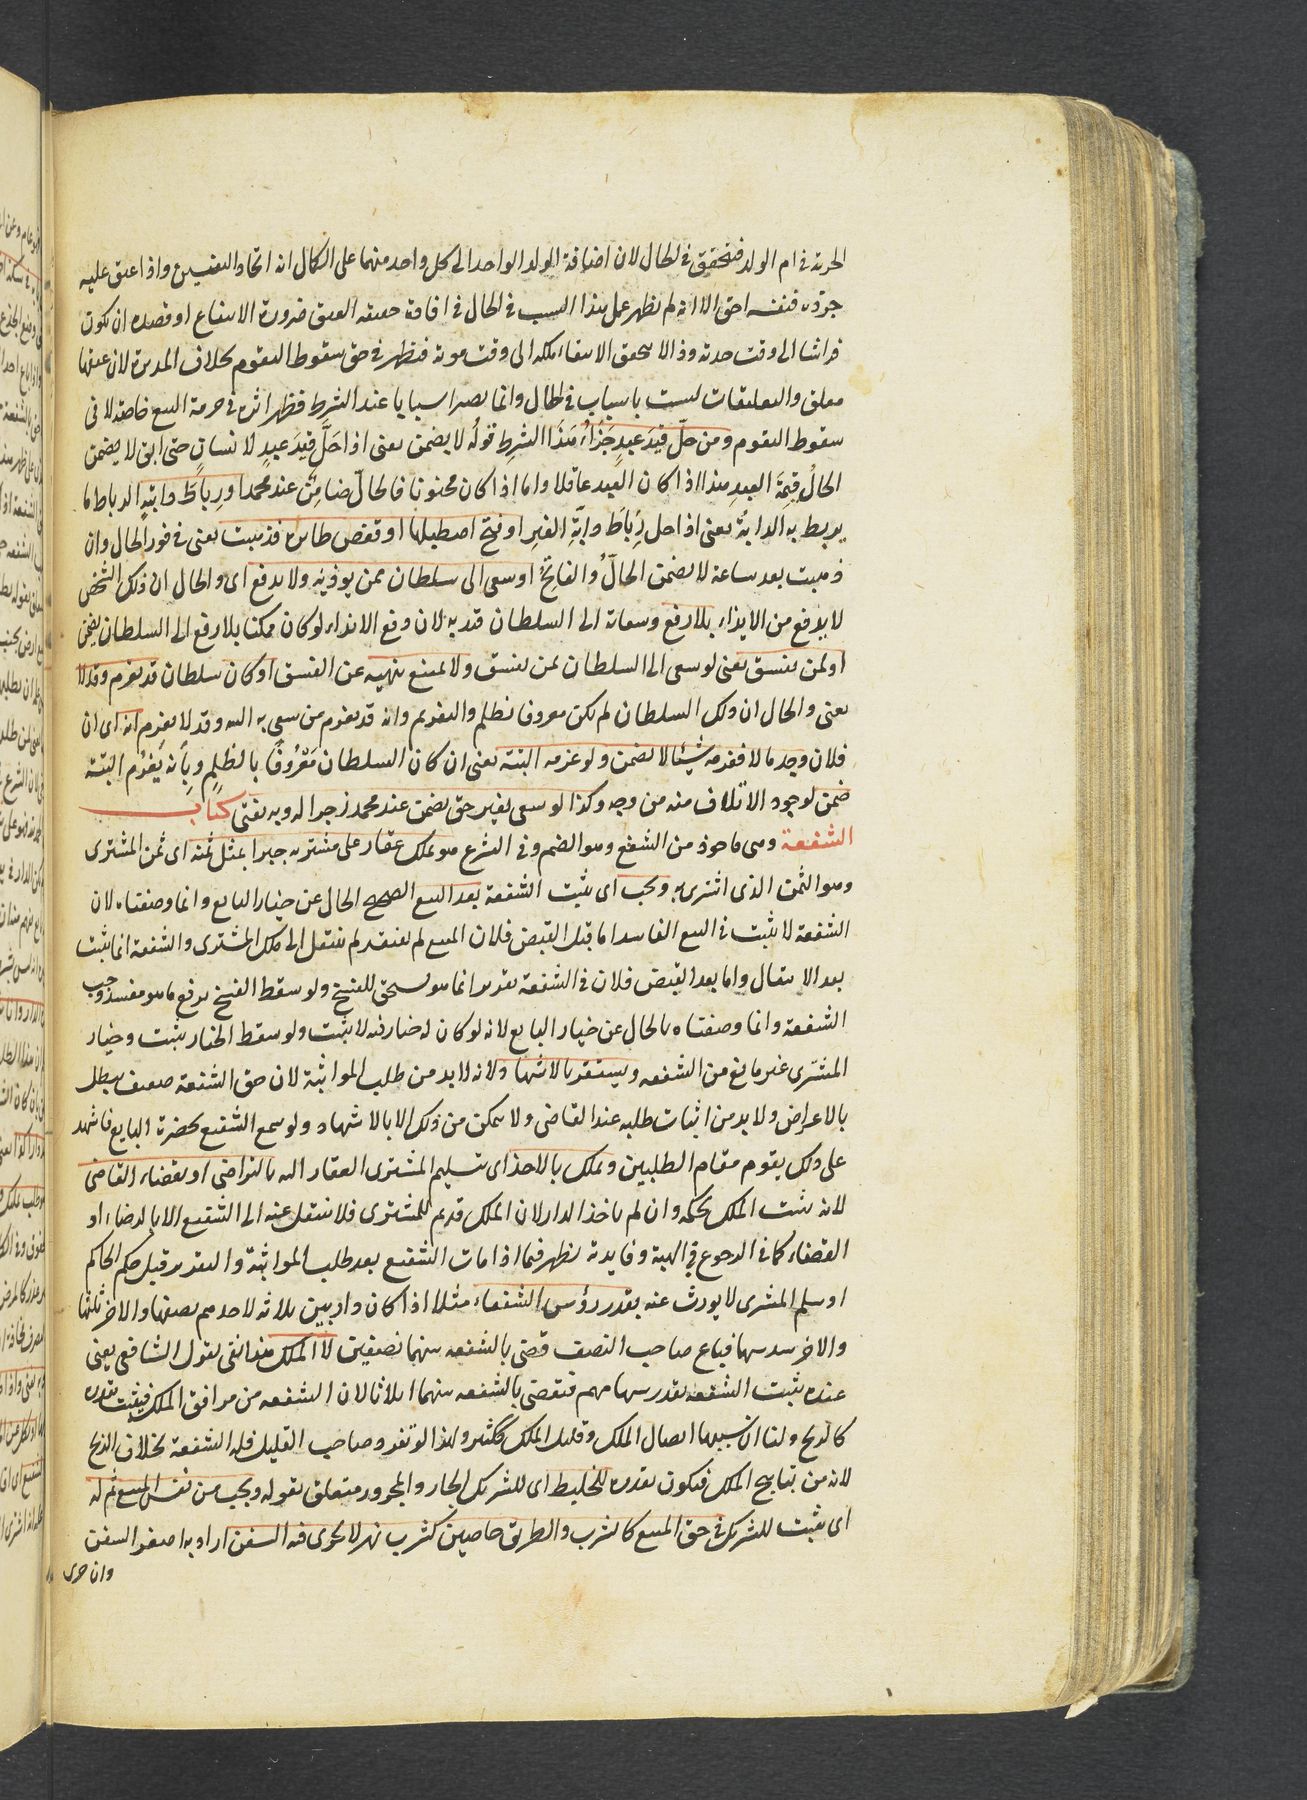 الحرية في ام الولد فتحقق في الحال لان اضافة الولد الواحد الى كل واحد منهما على الكمال اية اتحاد النفسين واذا عتق عليه
جزؤه فنفسه احق الا انه لم يظهر عمل هذا السبب في الحال في افادة حقيقة العتق ضرورة الانتفاع او قصده ان تكون
فراشا الى وقت موته وذا لا يتحقق الا ببقاء ملكه الى وقت موته فيظهر في حق سقوط التقوم بخلاف المدبرة لان عتقها
معلق والتعليقات ليست باسباب في الحال وانما يصير اسبابا عند الشرط فظهر اثره في حرمة البيع خاصة لا في
سقوط التقوم ومن حلّ قيدَ عبدٍ جَزَاءُ هَذَا الشرطِ قولُه لا يضمن يعني اذا حَلَّ قيدَ عبدٍ لانسانٍ حتى ابق لا يضمن
الحالُّ قِيمَةَ العبدِ هذا اذا كان العبد عاقلا واما اذا كان مجنونا فالحالّ ضامنٌ عند محمد او رباطَ دابةٍ الرباط ما
يربط به الدابةُ يعني اذا حل رِبَاطَ دابّةِ الغيرِ او فتح اصطبلها او قفص طائره فذهبت يعني في فور الحال وان
ذهبت بعد ساعة لا يضمن الحالُّ والفاتِحُ او سعى الى سلطان ممن يوذيه ولا يدفع اى والحال ان ذلك الشخص
لا يدفع من الايذاء بلا رفع وسعاية الى السلطان قيد به لان دفع الايذاء لو كان ممكنا بلا رفع الى السلطان يضمن
او لمن يفسق يعني لو سعى الى السلطان لمن يفسق ولا يمتنع بنهيه عن الفسق او كان سلطان قد يغرم وقد لا
يعني والحال ان ذلك السلطان لم يكن معروفا بظلم والتغريم وانه قد يغرم من سعي به اليه وقد لا يغرم انه اى ان
فلان وجد مالا فغرمه شيئا لا يضمن ولو غرمه البتة يعني ان كان السلطان مَعْرُوفًا بالظلمِ وبأنه يَغرُم البتة
ضمن لوجود الاتلاف منه من وجه وكذا لو سعى بغير حق يضمن عند محمد زجرا له وبه يفتى كتاب
الشفعة وهى ماخوذ من الشفع وهو الضم وفي الشرع هو تملك عقار على مشتريه جبرا بمثل ثمنه اى ثمن المشترى
وهو الثمن الذى اشترى به ويجب اى يثبت الشفعة بعد البيع الصحيح الخالى عن خيار البايع وانما وصفناه لان
الشفعة لا تثبت في البيع الفاسد اما قبل القبض فلان المبيع لم ينتقل الى ملك المشترى والشفعة انما تثبت
بعد الانتقال واما بعد القبض فلان في الشفعة تقرير انما هو يستحق للفسخ ولو سقط الفسخ برفع ما هو مفسد وجب
الشفعة وانما وصفناه بالخالى عن خيار البايع لانه لو كان له خيار فيه لا يثبت ولو سقط الخيار يثبت وخيار
المشترى غير مانع من الشفعه ويستقر بالاشهاد ولانه لا بد من طلب المواثبة لان حق الشفعة ضعيف يبطل
بالاعراض ولا بد من اثبات طلبه عند القاضى ولا يمكن من ذلك الا بالاشهاد ولو سمع الشفيع بحضرة البايع فاشهد
على ذلك يقوم مقام الطلبين وتملك بالاخذ اى تسليم المشترى العقار اليه بالتراضى او بقضاء القاضى
لانه يثبت الملك بحكمه وان لم ياخذ الدار لان الملك قد تم للمشترى فلا ينتقل عنه الى الشفيع الا بالرضاء او
القضاء كما في الرجوع في الهبة وفايدته يظهر فيما اذا مات الشفيع بعد طلب المواثبة والتقرير قبل حكم الحاكم
او سلم المشترى لا يورث عنه بقدر رؤس الشفعاء مثلا اذا كان دار بين ثلاثة لاحدهم نصفها والاخر ثلثها
والاخر سدسها فباع صاحب النصف قضى بالشفعه بينهما نصفين لا الملك هذا نفى لقول الشافعى يعني
عنده يثبت الشفعه بقدر سهامهم فيقضى بالشفعه بينهما اثلاثا لان الشفعه من مرافق الملك فيثبت بقدره
كالربح ولنا ان سببها اتصال الملك وقليل الملك ككثيره ولهذا لو تفرد صاحب القليل فله الشفعة بخلاف الربح
لانه من نتايج الملك فيكون بقدره للخليط اى للشريك الجار والمجرور متعلق بقوله ويجب من نفس المبيع ثم له
اى يثبت للشريك في حق المبيع كالشرب والطريق خاصين كشرب نهر لا يجرى فيه السفن اراد به اصغر السفن
وان جرى